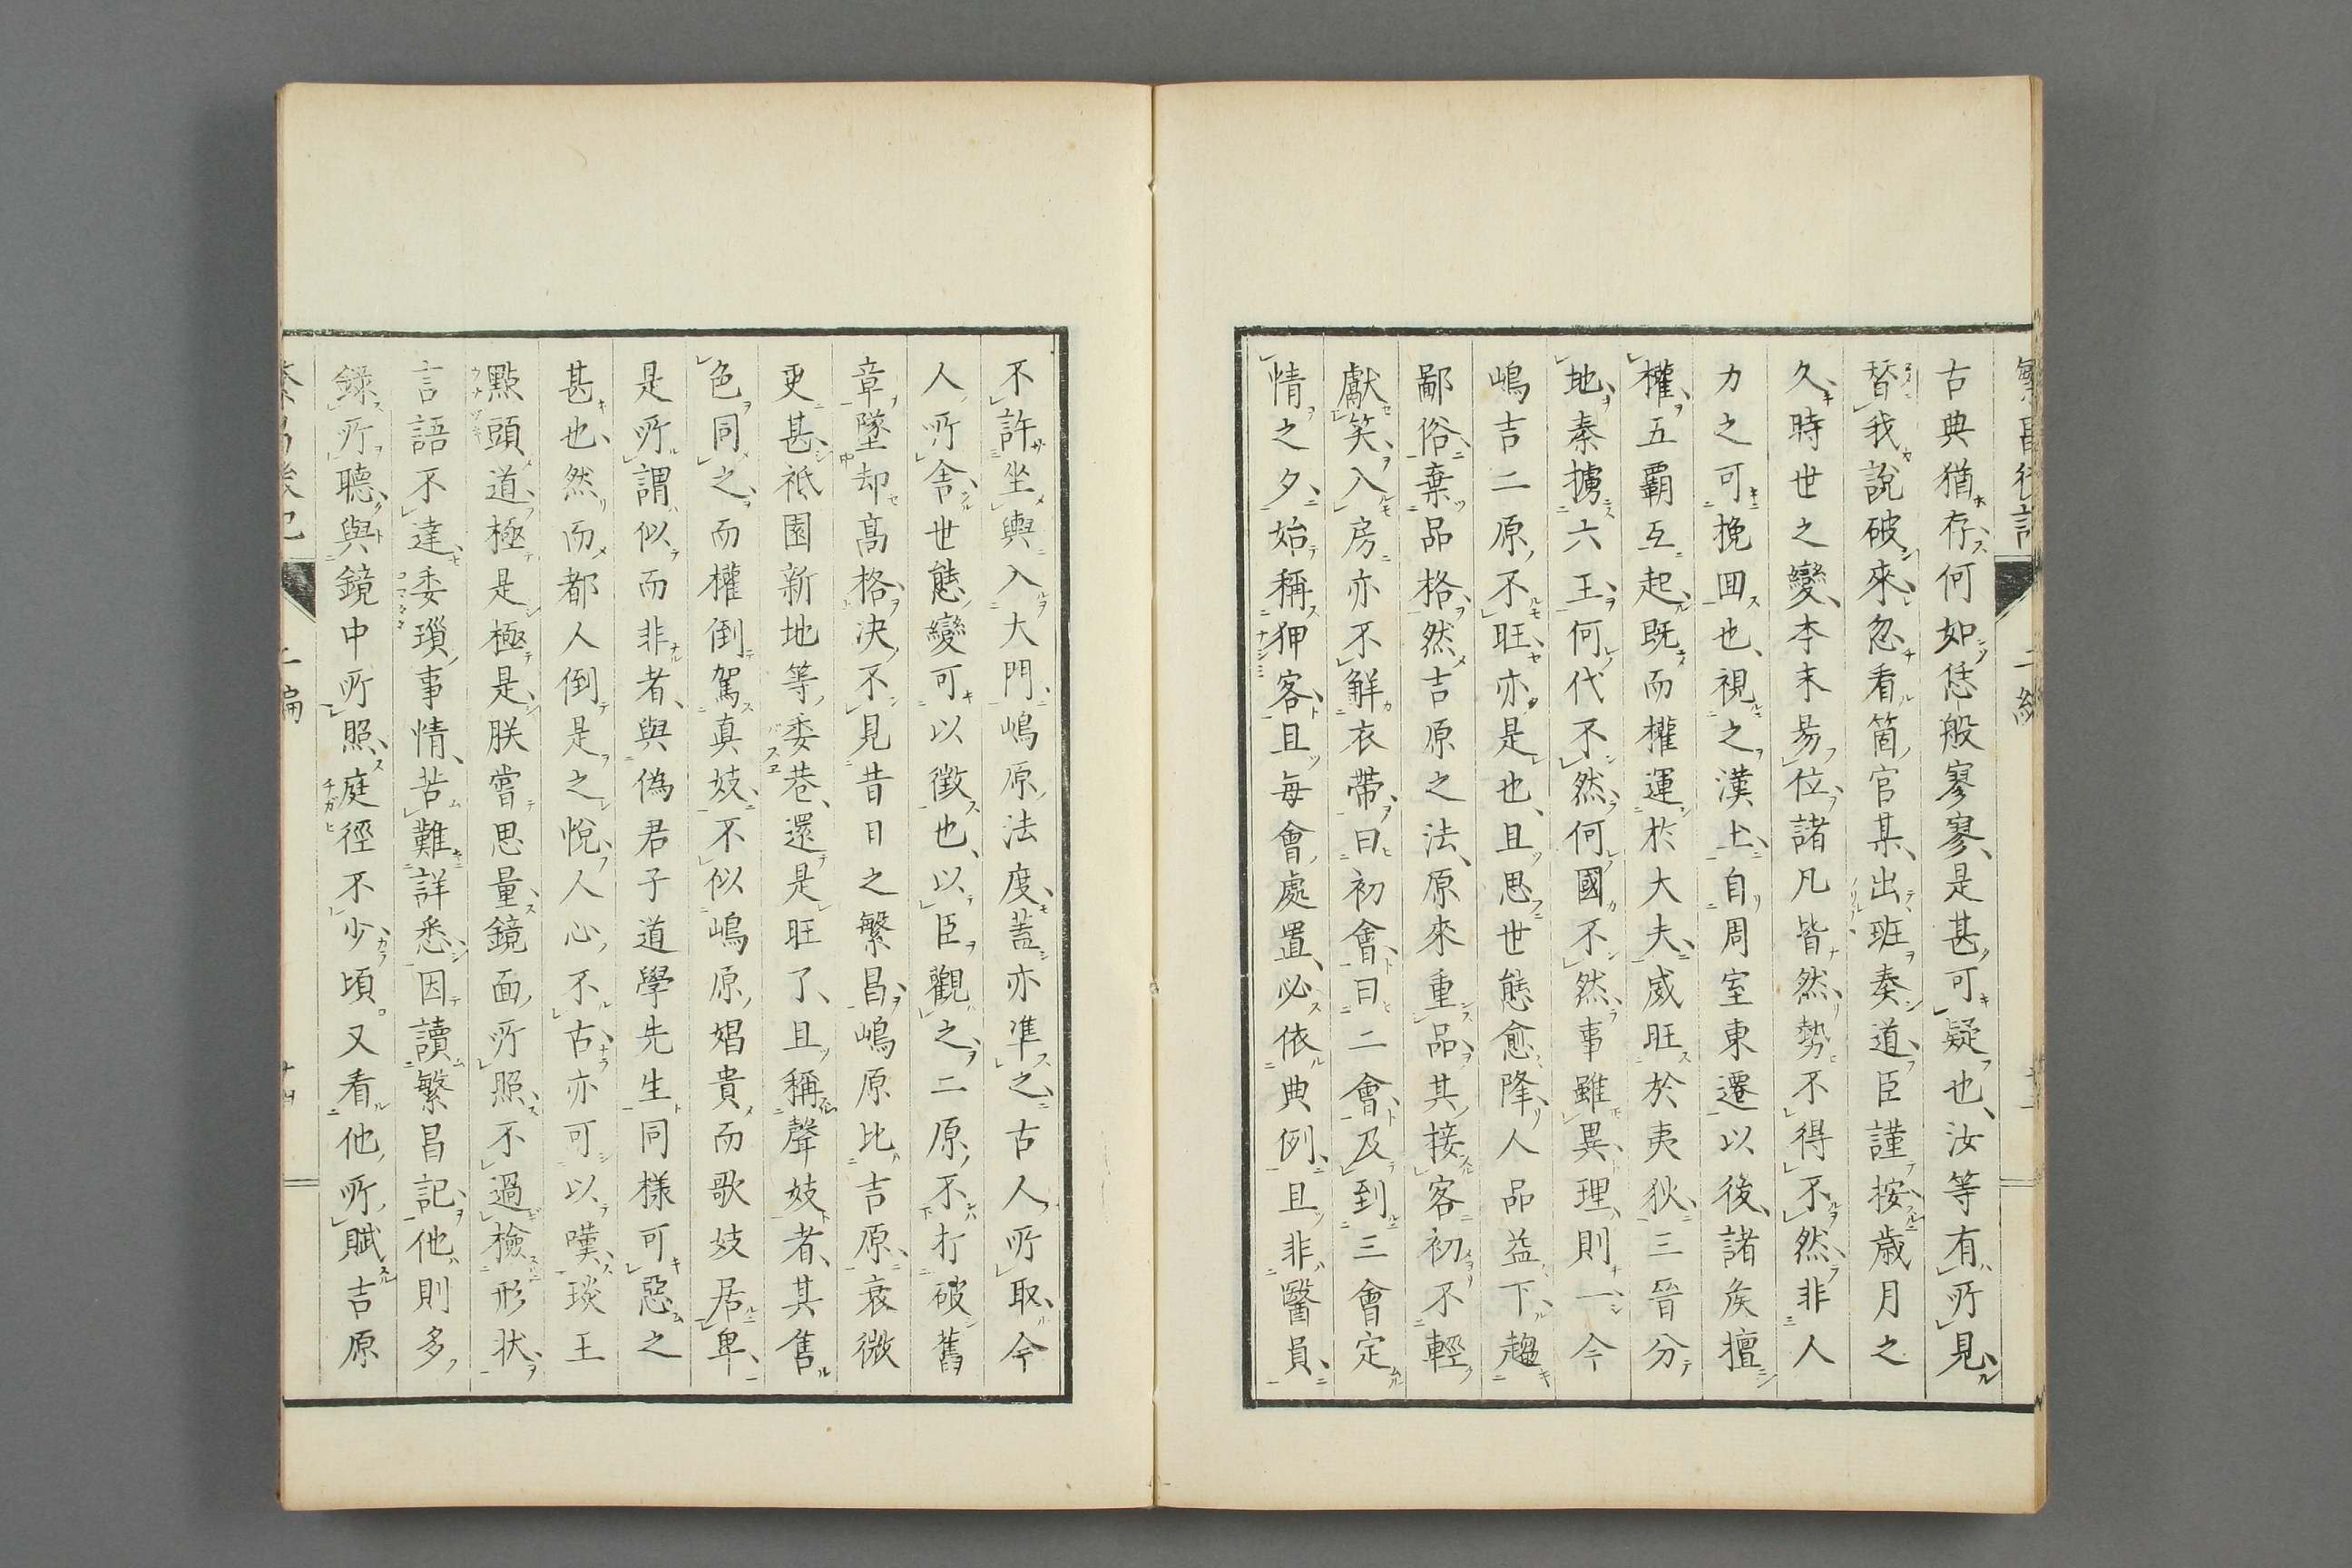 古典猶存何如恁般寥寥是甚可疑也汝等有所見
替我說破來忽看箇官某出班奏道臣謹按歳月之
久時世之變本末易位諸凡皆然勢不得不然非人
力之可挽回也視之漢土自周室東遷以後諸侯擅
權五霸互起既而權運於大夫威旺於夷狄三晉分
地秦擄六王何代不然何國不然事雖異理則一今
嶋吉二原不旺亦是也且思世態愈降人品益下趨
鄙俗棄品格然吉原之法原來重品其接客初不輕
獻笑入房亦不解衣帶曰初會曰二會及到三會定
情之夕始稱狎客且每會處置必依典例且非醫員
不許坐輿入大門嶋原法度蓋亦準之古人所取今
人所舍世態變可以徴也以臣觀之二原不打破舊
章墜却高格決不見昔日之繁昌嶋原比吉原衰微
更甚祗園新地等委巷還是旺了且稱聲妓者其售
色同之而權倒駕真妓不似嶋原娼貴而歌妓居卑
是所謂似而非者與偽君子道學先生同樣可惡之
甚也然而都人倒是之悅人心不古亦可以嘆琰王
點頭道極是極是朕嘗思量鏡面所照不過檢形状
言語不達委瑣事情苦難詳悉因讀繁昌記他則多
録所聽與鏡中所照庭徑不少頃又看他所賦吉原